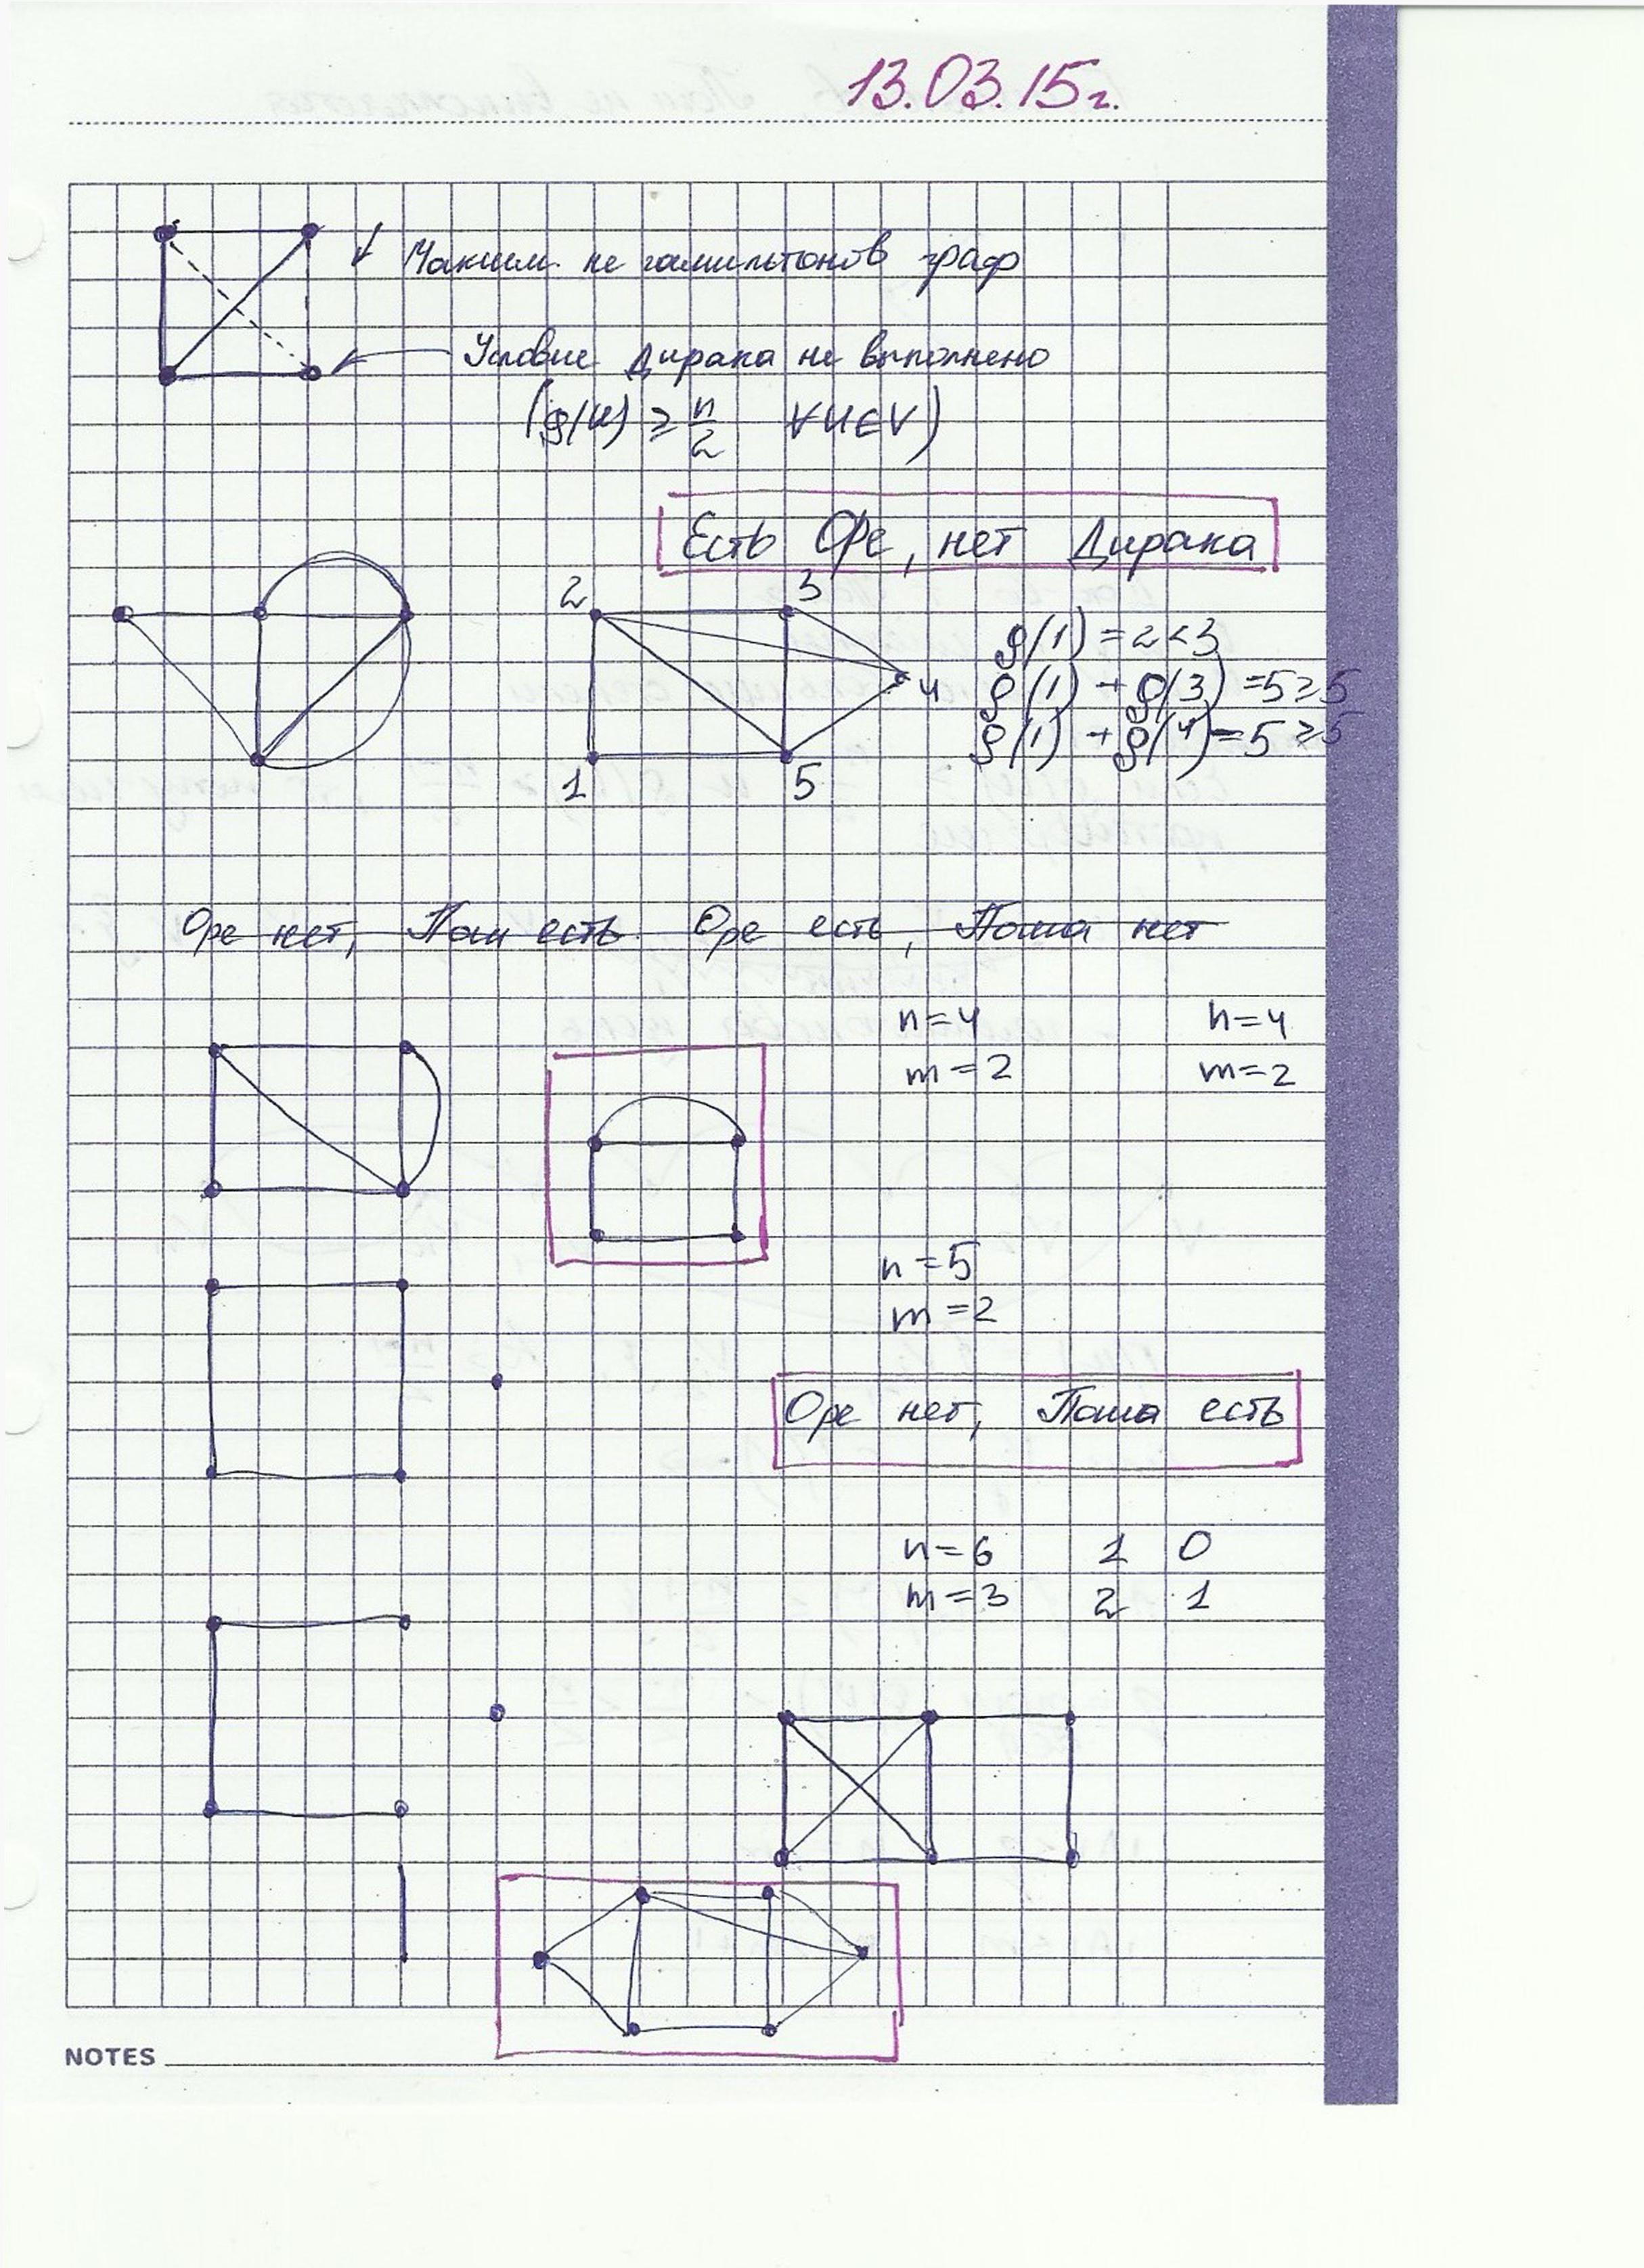 13.03.15г.
Максим. не гамильтонов граф
Условие Дирака не выполнено
(ρ(u) ≥ n/2 ∀u∈V)
Есть Оре, нет Дирака
2 3
ρ(1) = 2 < 3
4 ρ(1) + ρ(3) = 5 ≥ 5
ρ(1) + ρ(4) = 5 ≥ 5
1 5
Оре нет, Пош есть. Оре есть, Поша нет
n=4 n=4
m=2 m=2
n=5
m=2
Оре нет, Поша есть
n=6 1 0
m=3 2 1
NOTES